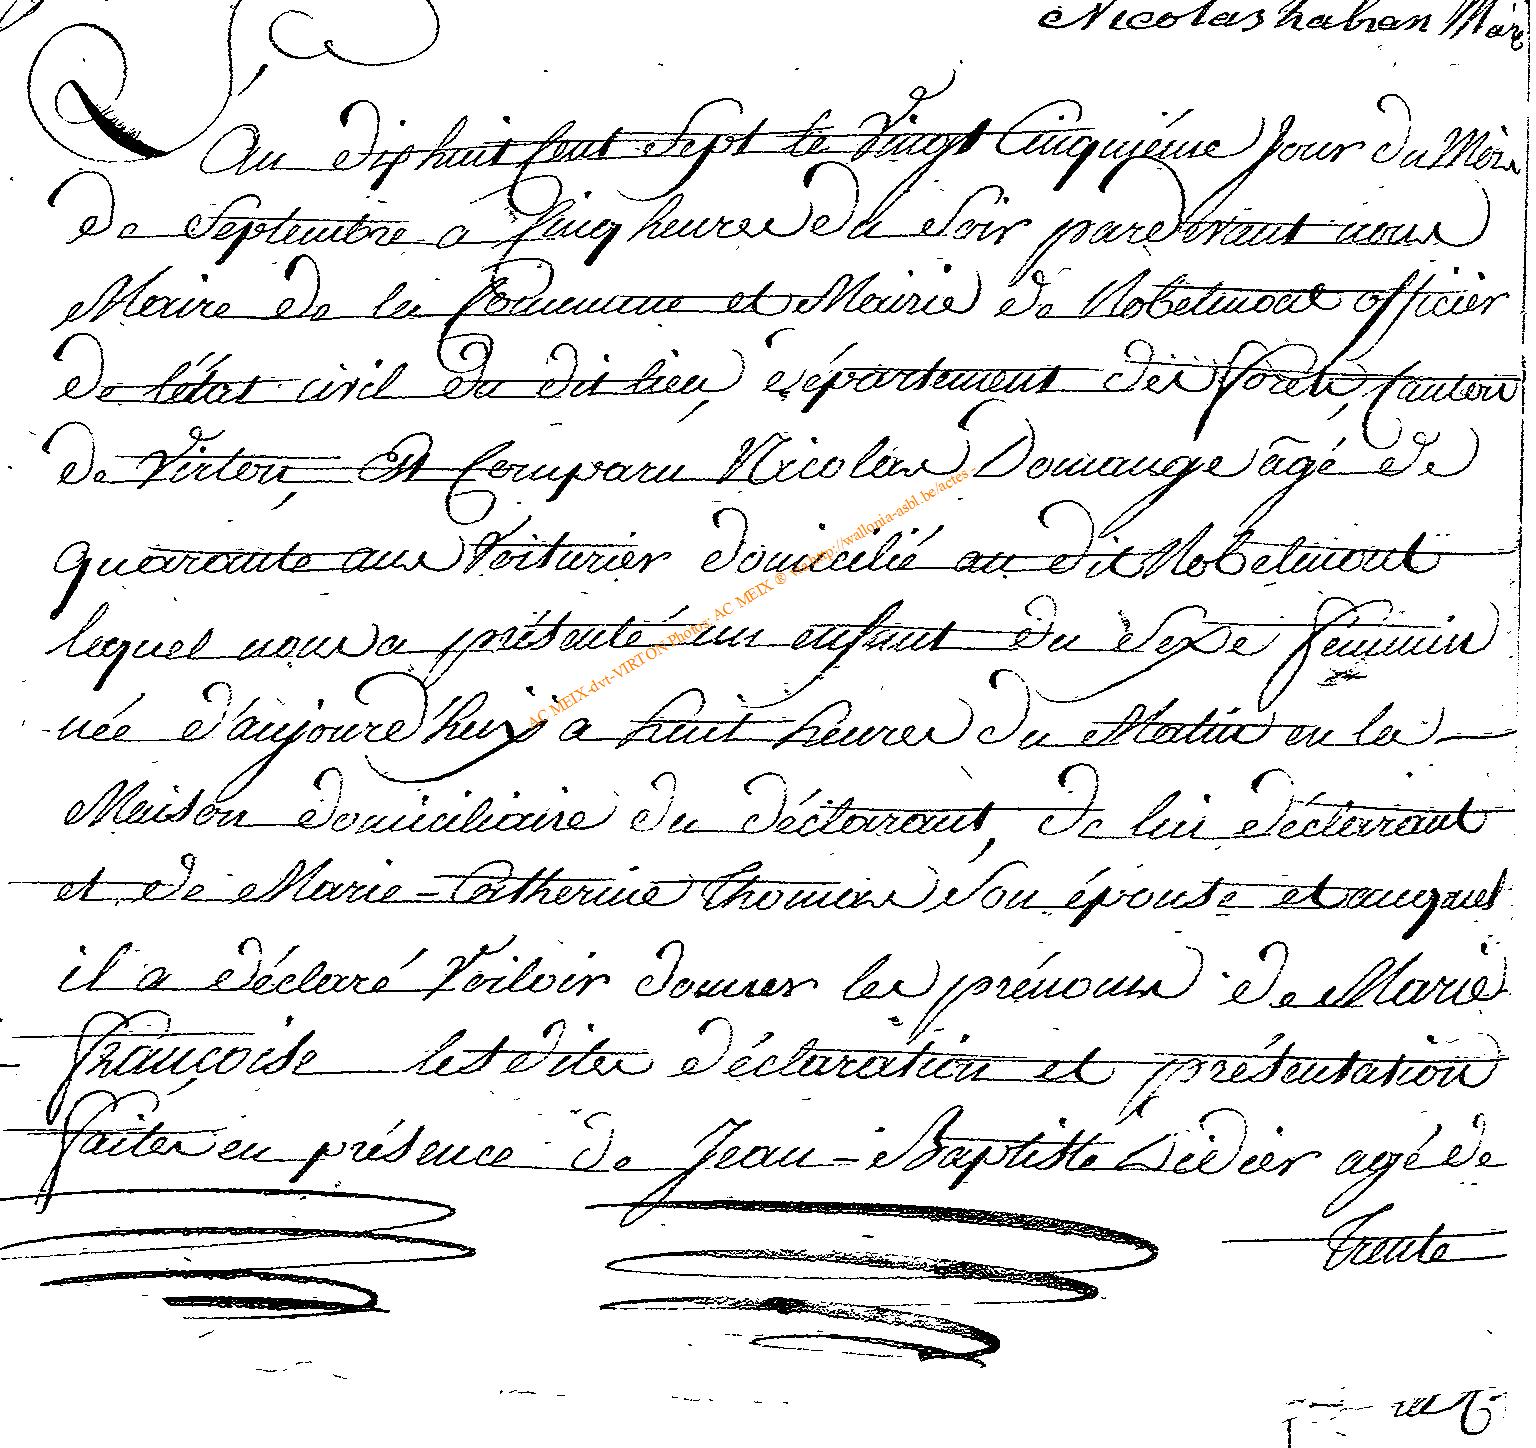 Nicolas habran Maire
An dixhuit Cent Sept le Vingt Cinquiéme Jour du Mois
de Septembre a Cinq heures du Soir pardevant nous
Maire de la Commune et Mairie de Robelmont officier
de l'état civil du dit lieu, département des Forets, Canton
de Virton, Est Comparu Nicolas Domange âgé de
quarante ans Voiturier domicilié au dit Robelmont
lequel nous a présenté un enfant du Sexe féminin
née d'aujourd'huy a huit heures du Matin en la
Maison domiciliaire du déclarant, de lui déclarant
et de Marie-Catherine Thomas Son épouse et auquel
il a déclaré Voiloir donner les prénoms de Marie
françoise lesdites déclaration et présentation
faites en présence de Jean-Baptiste Didier agé de
Trente
AC MEIX-dvt-VIRTON Photos AC MEIX ® http://wallonia-asbl.be/actes